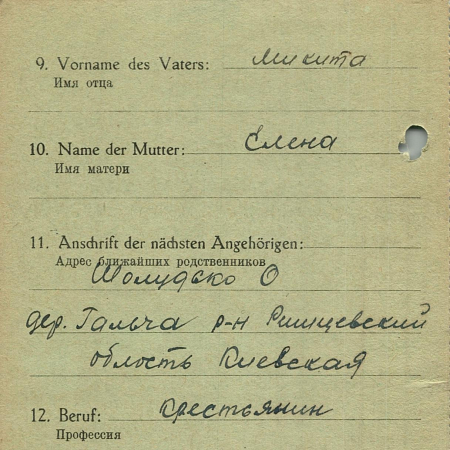 9. Vorname des Vaters: Микита
Имя отца
10. Name der Mutter: Елена
Имя матери
11. Anschrift der nächsten Angehörigen:
Адрес ближайших родственников
Шолудько О
дер. Гальча р-н Ришцевский
область Киевская
12. Beruf: крестьянин
Профессия